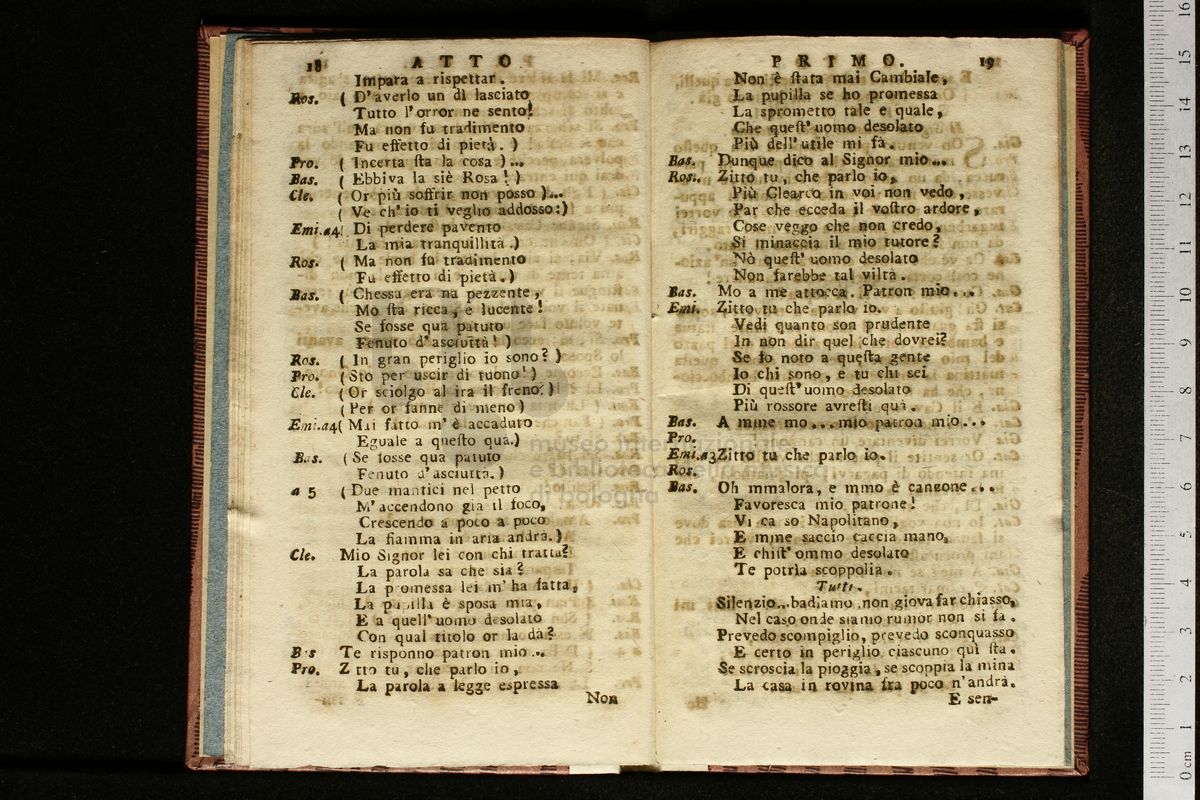 18 ATTO
Impara a rispettar.
Ros. ( D'averlo un dì lasciato
Tutto l'orror ne sento!
Ma non fu tradimento
Fu effetto di pietà. )
Pro. ( Incerta sta la cosa )...
Bas. ( Ebbiva la siè Rosa! )
Cle. ( Or più soffrir non posso )...
( Ve ch'io ti veglio addosso:)
Emi.a4( Di perdere pavento
La mia tranquillità.)
Ros. ( Ma non fu tradimento
Fu effetto di pietà.)
Bas. ( Chessa era na pezzente,
Mo sta ricca, e lucente!
Se fosse quà patuto
Fenuto d'asciuttà! )
Ros. ( In gran periglio io sono? )
Pro. (Sto per uscir di tuono!)
Cle. (Or sciolgo al ira il freno:)
(Per or fanne di meno)
Emi.a4( Mai fatto m'è accaduto
Eguale a questo quà.)
Bas. (Se fosse qua patuto
Fenuto d'asciuttà.)
a 5 (Due mantici nel petto
M'accendono già il foco,
Crescendo a poco a poco
La fiamma in aria andrà.)
Cle. Mio Signor lei con chi tratta?
La parola sa che sia?
La promessa lei m'ha fatta,
La pupilla è sposa mia,
E a quell'uomo desolato
Con qual titolo or la dà?
Bas Te risponno patron mio...
Pro. Zitto tu, che parlo io,
La parola a legge espressa
Non
PRIMO. 19
Non è stata mai Cambiale,
La pupilla se ho promessa
La sprometto tale e quale,
Che quest'uomo desolato
Più dell'utile mi fà.
Bas. Dunque dico al Signor mio...
Ros. Zitto tu, che parlo io,
Più Clearco in voi non vedo,
Par che ecceda il vostro ardore,
Cose veggo che non credo,
Si minaccia il mio tutore?
Nò quest'uomo desolato
Non farebbe tal viltà.
Bas. Mo a me attocca. Patron mio...
Emi. Zitto tu che parlo io.
Vedi quanto son prudente
In non dir quel che dovrei?
Se fo noto a questa gente
Io chi sono, e tu chi sei
Di quest'uomo desolato
Più rossore avresti quà.
Bas. A mme mo...mio patron mio...
Pro.
Emi.a3Zitto tu che parlo io.
Ros.
Bas. Oh mmalora, e mmo è canzone...
Favoresca mio patrone!
Vi ca so Napolitano,
E mme saccio caccia mano,
E chist'ommo desolato
Te potrìa scoppolia.
Tutti.
Silenzio...badiamo non giova far chiasso,
Nel caso onde siamo rumor non si fa.
Prevedo scompiglio, prevedo sconquasso
E certo in periglio ciascuno quì sta.
Se scroscia la pioggia, se scoppia la mina
La casa in rovina fra poco n'andrà.
E sen-
museo internazionale
e biblioteca della musica
di bologna
0 cm 1 2 3 4 5 6 7 8 9 10 11 12 13 14 15 16